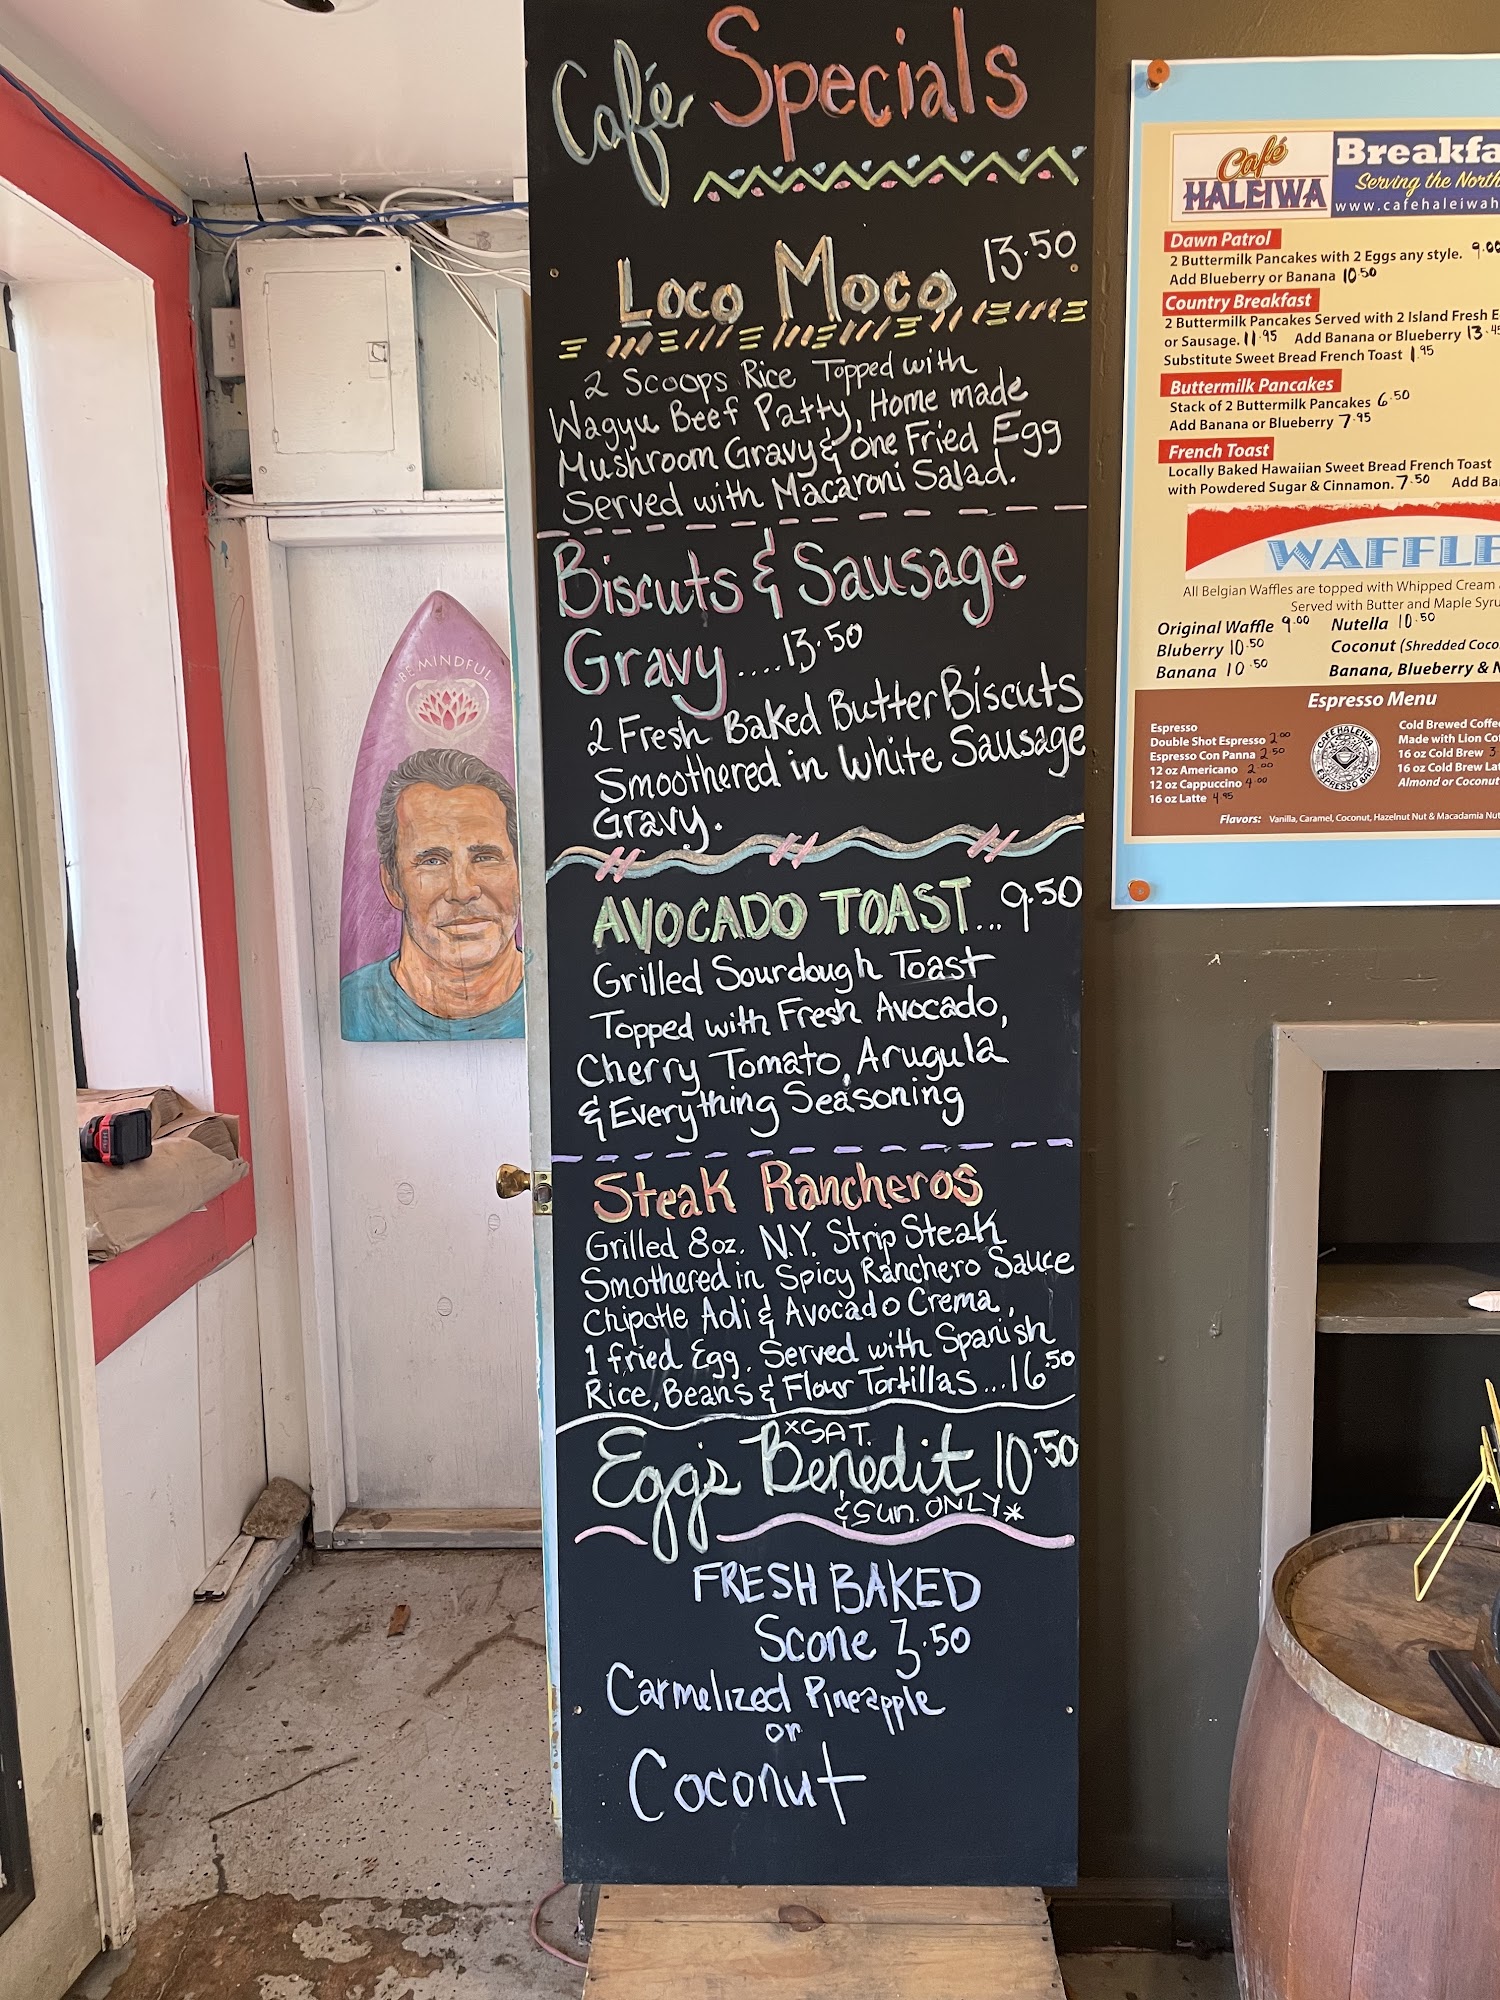 Café Specials
Loco Moco 13.50
2 Scoops Rice Topped with
Wagyu Beef Patty, Home made
Mushroom Gravy & one Fried Egg
Served with Macaroni Salad.
Biscuts & Sausage
Gravy....13.50
2 Fresh Baked Butter Biscuts
Smoothered in White Sausage
Gravy.
AVOCADO TOAST...9.50
Grilled Sourdough Toast
Topped with Fresh Avocado,
Cherry Tomato, Arugula
& Everything Seasoning
Steak Rancheros
Grilled 8oz. N.Y. Strip Steak
Smothered in Spicy Ranchero Sauce
Chipotle Aoli & Avocado Crema,
1 fried Egg. Served with Spanish
Rice, Beans & Flour Tortillas...16.50
*SAT.
Egg's Benedit 10.50
& Sun. ONLY*
FRESH BAKED
Scone 3.50
Carmelized Pineapple
or
Coconut
BE MINDFUL
Café
HALEIWA
Breakfa
Serving the North
www.cafehaleiwah
Dawn Patrol
2 Buttermilk Pancakes with 2 Eggs any style. 9.00
Add Blueberry or Banana 10.50
Country Breakfast
2 Buttermilk Pancakes Served with 2 Island Fresh E
or Sausage. 11.95 Add Banana or Blueberry 13.45
Substitute Sweet Bread French Toast 1.95
Buttermilk Pancakes
Stack of 2 Buttermilk Pancakes 6.50
Add Banana or Blueberry 7.95
French Toast
Locally Baked Hawaiian Sweet Bread French Toast
with Powdered Sugar & Cinnamon. 7.50 Add Ba
WAFFLE
All Belgian Waffles are topped with Whipped Cream
Served with Butter and Maple Syru
Original Waffle 9.00 Nutella 10.50
Bluberry 10.50 Coconut (Shredded Coco
Banana 10.50 Banana, Blueberry & N
Espresso Menu
Espresso
Double Shot Espresso 2.00
Espresso Con Panna 2.50
12 oz Americano 2.00
12 oz Cappuccino 4.00
16 oz Latte 4.95
CAFE HALEIWA
ESPRESSO BAR
Cold Brewed Coffee
Made with Lion Cof
16 oz Cold Brew 3
16 oz Cold Brew Lat
Almond or Coconut
Flavors: Vanilla, Caramel, Coconut, Hazelnut Nut & Macadamia Nut